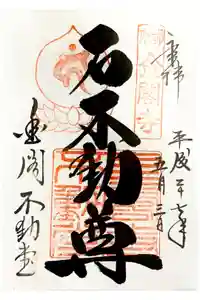 奉拝
平成二十七年
五月三日
石不動尊
金閣
不動堂